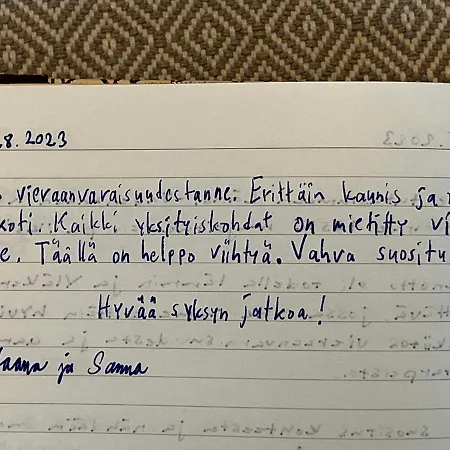 .8.2023
vieraanvaraisuudestanne. Erittäin kaunis ja
koti. Kaikki yksityiskohdat on mietitty vi
e. Täällä on helppo viihtyä. Vahva suositu
Hyvää syksyn jatkoa!
aana ja Sanna